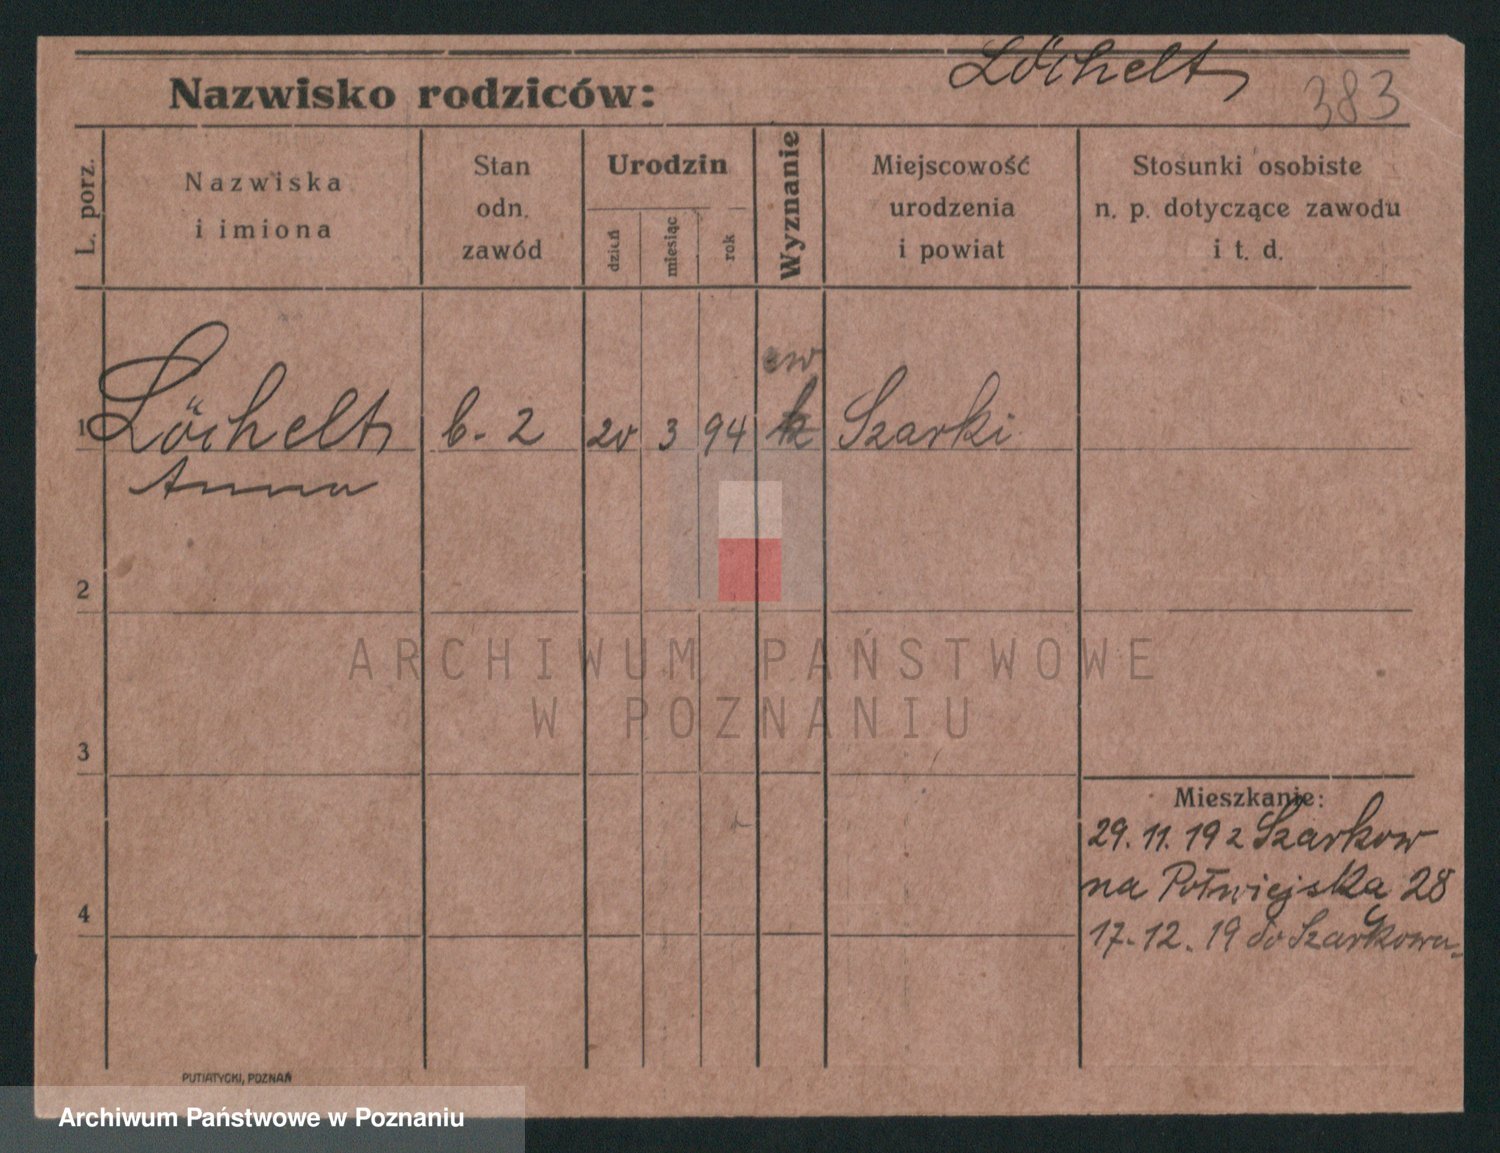 Nazwisko rodziców: Löchelt 383
L. porz.
Nazwiska
i imiona
Stan
odn.
zawód
Urodzin
dzień
miesiąc
rok
Wyznanie
Miejscowość
urodzenia
i powiat
Stosunki osobiste
n. p. dotyczące zawodu
i t. d.
ew
1 Löchelt b. 2 20 3 94 k Szarki
Anna
2
3
4
Mieszkanie:
29. 11. 19 z Szarkow
na Półwiejską 28
17. 12. 19 do Szarkowa
PUTIATYCKI, POZNAŃ
ARCHIWUM PAŃSTWOWE
W POZNANIU
Archiwum Państwowe w Poznaniu